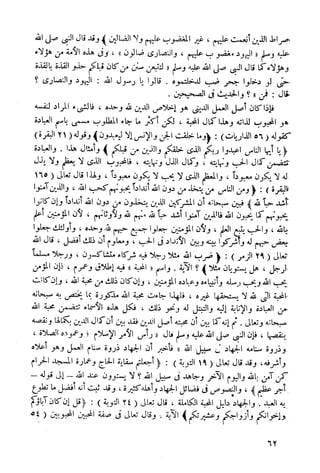 صراط الذين أنعمت عليهم ، غير المغضوب عليهم ولا الضالين ) وقد قال النبى صلى الله
عليه وسلم « اليهود مغضوب عليهم ، والنصارى ضالون » ، وفى هذه الأمة من هؤلاء
وهؤلاء كما قال النبى صلى الله عليه وسلم « لتتبعن سنن من كان قبلكم حذو القذة بالقذة
حتى لو دخلوا جحر ضب لدخلتموه . قالوا يا رسول الله : اليهود والنصارى ؟
قال : فمن » ؟ والحديث فى الصحيحين .
فإذا كان أصل العمل الدينى هو إخلاص الدين لله وحده ، فالشىء المراد لنفسه
هو المحبوب لذاته وهذا كمال المحبة ، لكن أكثر ما جاء المطلوب مسمى باسم العبادة
كقوله ( ٥٦ الذاريات ) : ( وما خلقت الجن والإنس إلا ليعبدون ) وقوله ( ٢١ البقرة )
( يا أيها الناس اعبدوا ربكم الذى خلقكم والذين من قبلكم ) وأمثال هذا . والعبادة
تتضمن كمال الحب ونهايته ، وكمال الذل ونهايته ، فالمحبوب الذى لا يعظم ولا يذل
له لا يكون معبوداً ، والمعظم الذى لا يحب لا يكون معبوداً ، ولهذا قال تعالى ( ١٦٥
البقرة ) : ( ومن الناس من يتخذ من دون الله أنداداً يحبونهم كحب الله ، والذين آمنوا
أشد حباً لله ) فبين سبحانه أن المشركين الذين يتخذون من دون الله أنداداً وإن كانوا
يحبونهم كما يحبون الله فالذين آمنوا أشد حباً لله منهم لله ولأوثانهم ، لأن المؤمنين أعلم
بالله ، والحب يتبع العلم ، ولأن المؤمنين جعلوا جميع حبهم لله وحده ، وأولئك جعلوا
بعض حبهم له وأشركوا بينه وبين الأنداد فى الحب ، ومعلوم أن ذلك أفضل ، قال الله
تعالى ( ٢٩ الزمر ) : ( ضرب الله مثلا رجلا فيه شركاء متشاكسون ، ورجلا سلماً
لرجل ، هل يستويان مثلا ) ؟ الآية . واسم « المحبة » فيه إطلاق وعموم ، فإن المؤمن
يحب الله ويحب رسله وأنبياءه وعباده المؤمنين ، وإن كان ذلك من محبة الله ، وإن كانت
المحبة التى لله لا يستحقها غيره ، فلهذا جاءت محبة الله مذكورة بما يختص به سبحانه
من العبادة والإنابة إليه والتبتل له ونحو ذلك ، فكل هذه الأسماء تتضمن محبة الله
سبحانه وتعالى . ثم إنه كما بين أن محبته أصل الدين فقد بين أن كمال الدين بكمالها ونقصه
بنقصها ، فإن النبى صلى الله عليه وسلم قال « رأس الأمر الإسلام ، وعموده الصلاة ،
وذروة سنامه الجهاد فى سبيل الله » فأخبر أن الجهاد ذروة سنام العمل وهو أعلاه
وأشرفه ، وقد قال تعالى ( ١٩ التوبة ) : ( أجعلتم سقاية الحاج وعمارة المسجد الحرام
كمن آمن بالله واليوم الآخر وجاهد فى سبيل الله ؟ لا يستوون عند الله — إلى قوله —
أجر عظيم ) ، والنصوص فى فضائل الجهاد وأهله كثيرة ، وقد ثبت أنه أفضل ما تطوع
به العبد . والجهاد دليل المحبة الكاملة ، قال تعالى ( ٢٤ التوبة ) : ( قل إن كان آباؤكم
وإخوانكم وأزواجكم وعشيرتكم ) الآية . وقال تعالى فى صفة المحبين المحبوبين ( ٥٤
٦٢